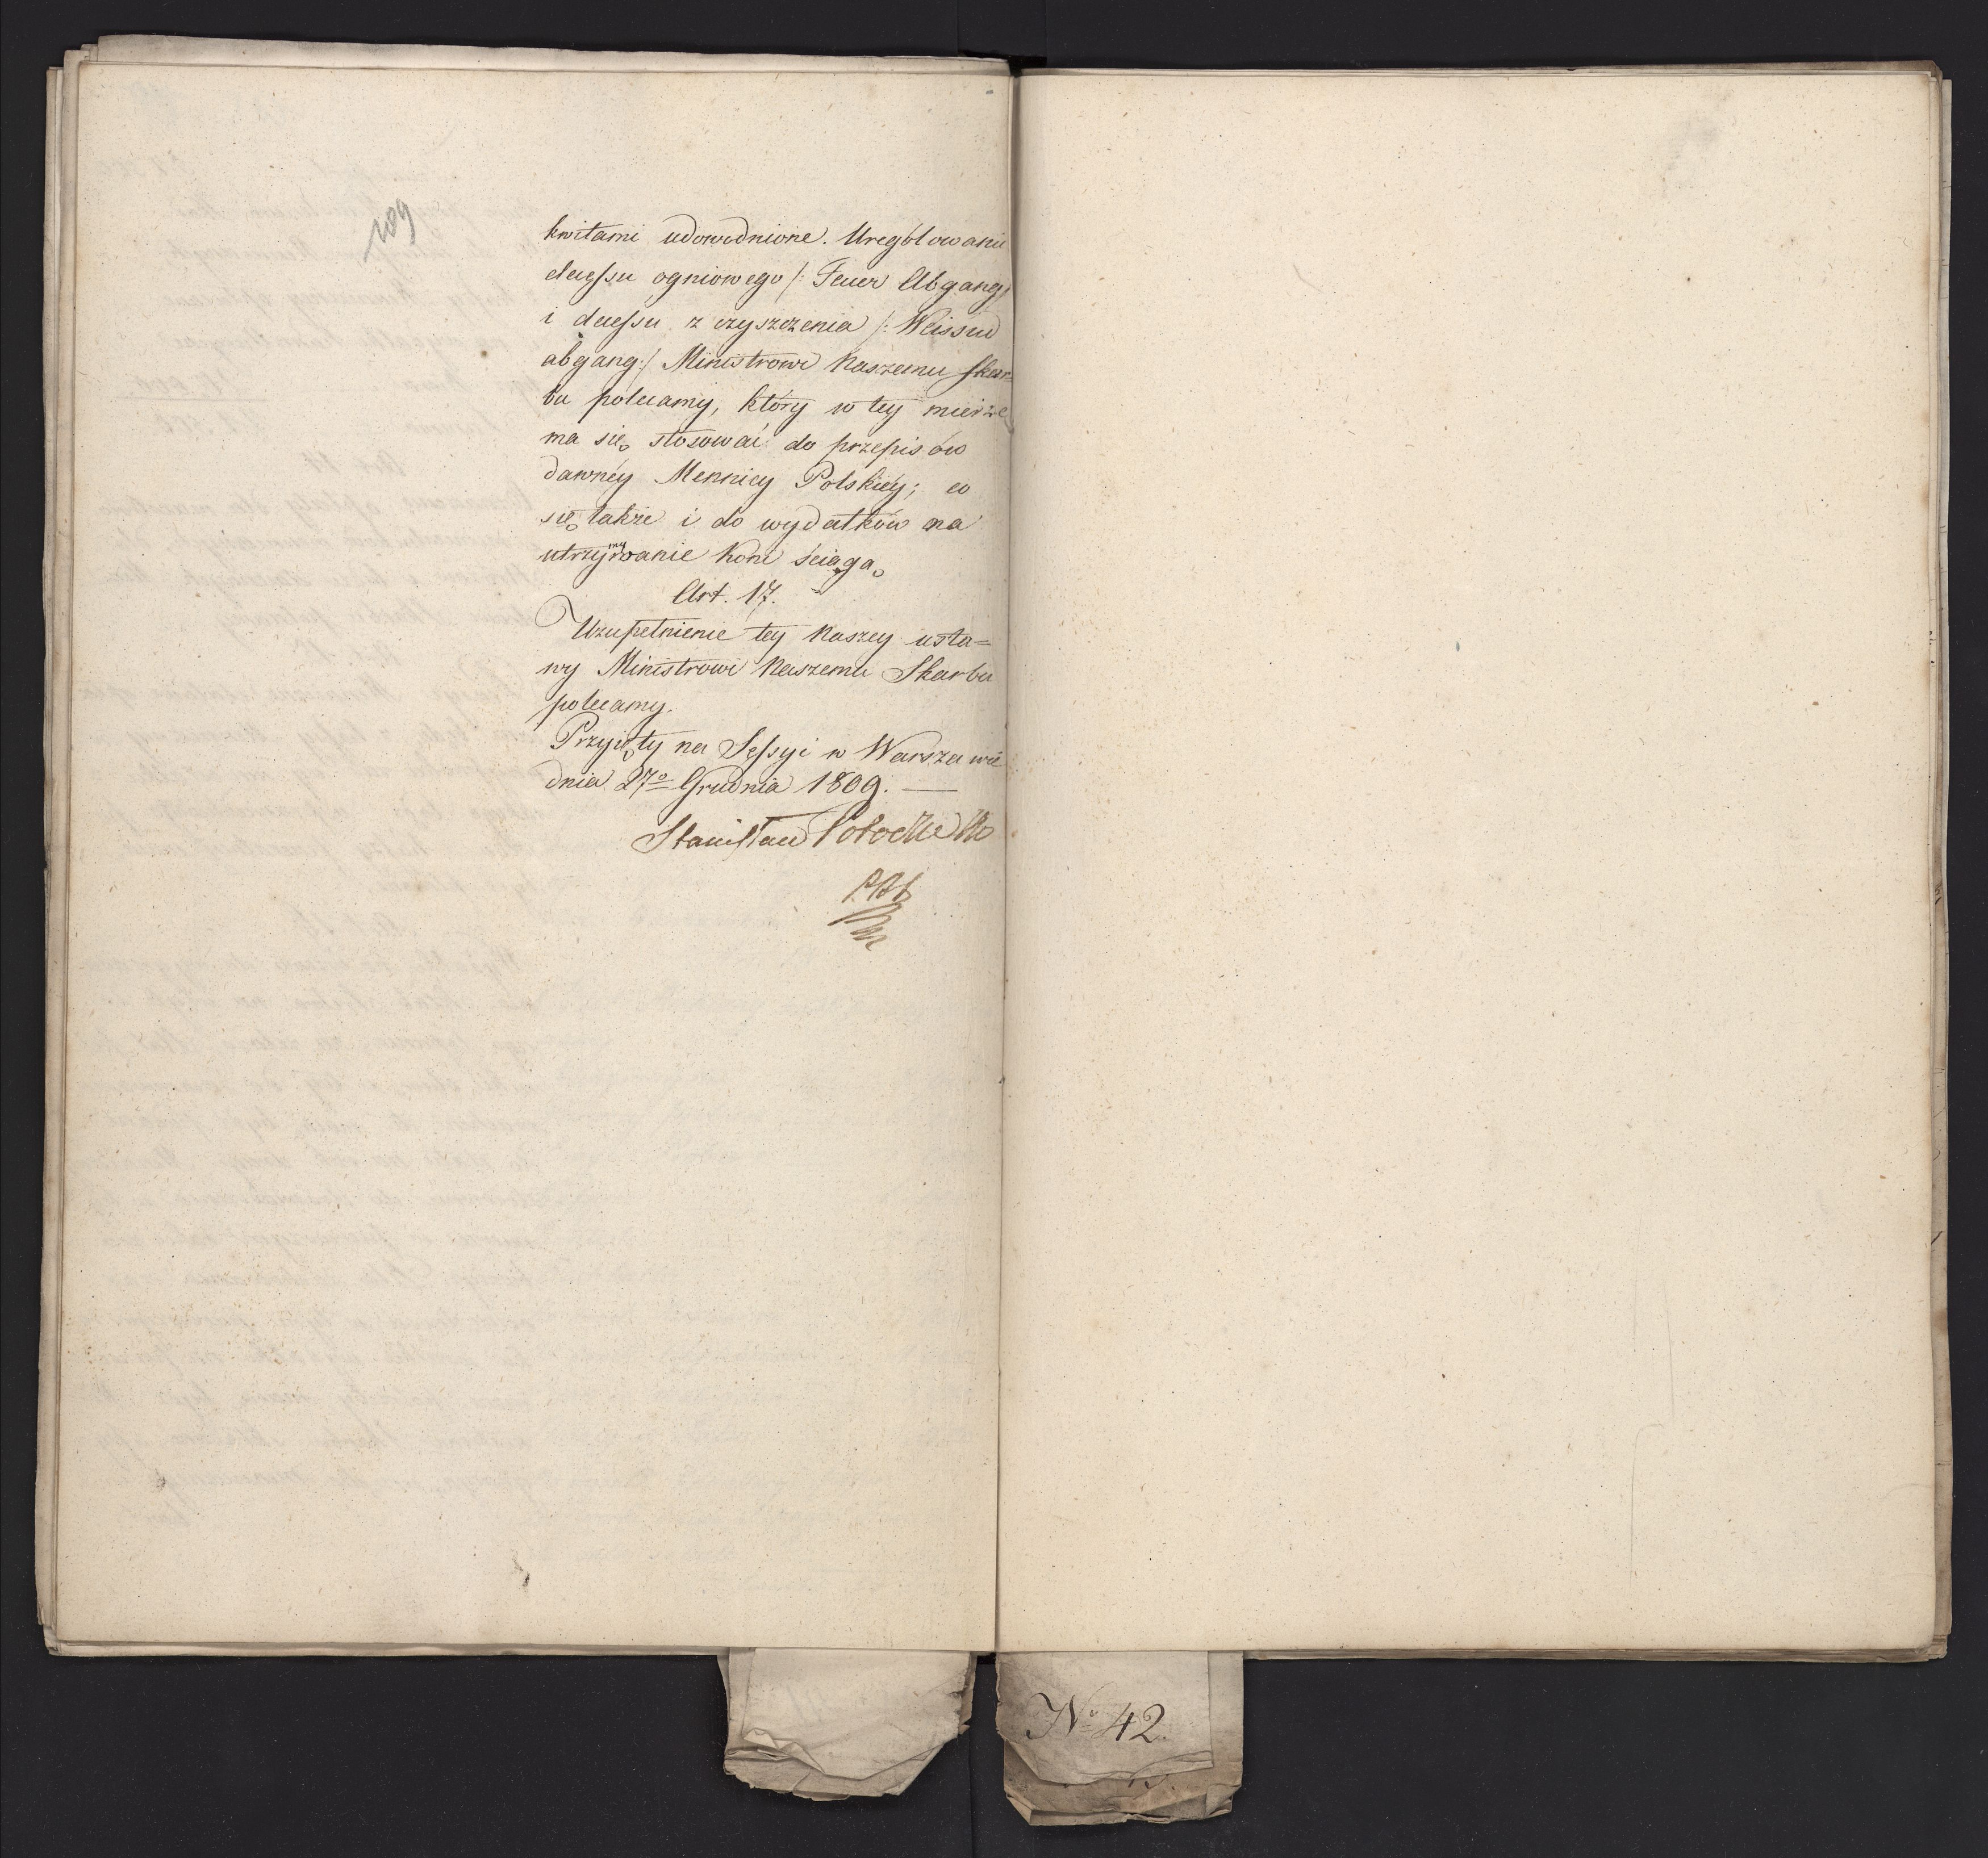 109
kwitami udowodnione. Uregolowanie
decessu ogniowego /: Feuer Abgang/
i decessu z czyszczenia /: Weissud
abgang:/ Ministrowi Naszemu Skar=
bu polecamy, który w tey mierze
ma się stosować do przepisów
dawnéy Mennicy Polskiéy; co
się także i do wydatków na
utrzymywanie koni ściąga.
Art. 17.
Uzupełnienie tey Naszey usta=
wy Ministrowi Naszemu Skarbu
polecamy.
Przyięty na Sessyi w Warszawie
dnia 27º Grudnia 1809. —
Stanisław Potocki
No 42.